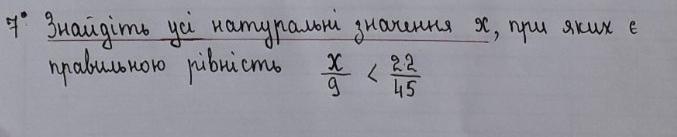 7° Знайдіть усі натуральні значення x, при яких є
правильною рівність x/9 < 22/45